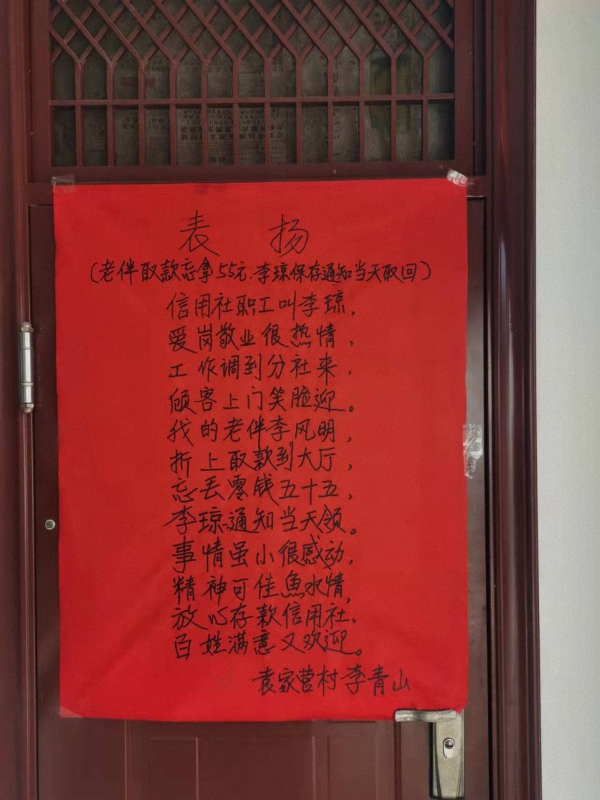 表扬
(老伴取款忘拿55元.李琼保存通知当天取回)
信用社职工叫李琼,
爱岗敬业很热情,
工作调到分社来,
顾客上门笑脸迎。
我的老伴李风明,
折上取款到大厅,
忘丢零钱五十五,
李琼通知当天领。
事情虽小很感动,
精神可佳魚水情,
放心存款信用社、
百姓满意又欢迎。
袁家营村李青山